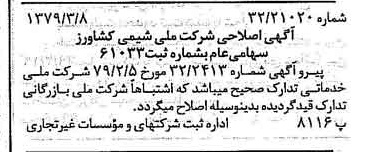 شماره ۳۲/۲۱۰۲۰ ۱۳۷۹/۳/۸
آگهی اصلاحی شرکت ملی شیمی کشاورز
سهامی‌عام بشماره ثبت ۶۱۰۳۳
پیرو آگهی شماره ۳۲/۲۴۱۳ مورخ ۷۹/۲/۵ شرکت ملی
خدماتی تدارک صحیح میباشد که اشتباهاً شرکت ملی بازرگانی
تدارک قید گردیده بدینوسیله اصلاح میگردد.
پ ۸۱۱۶ اداره ثبت شرکتهای و مؤسسات غیرتجاری